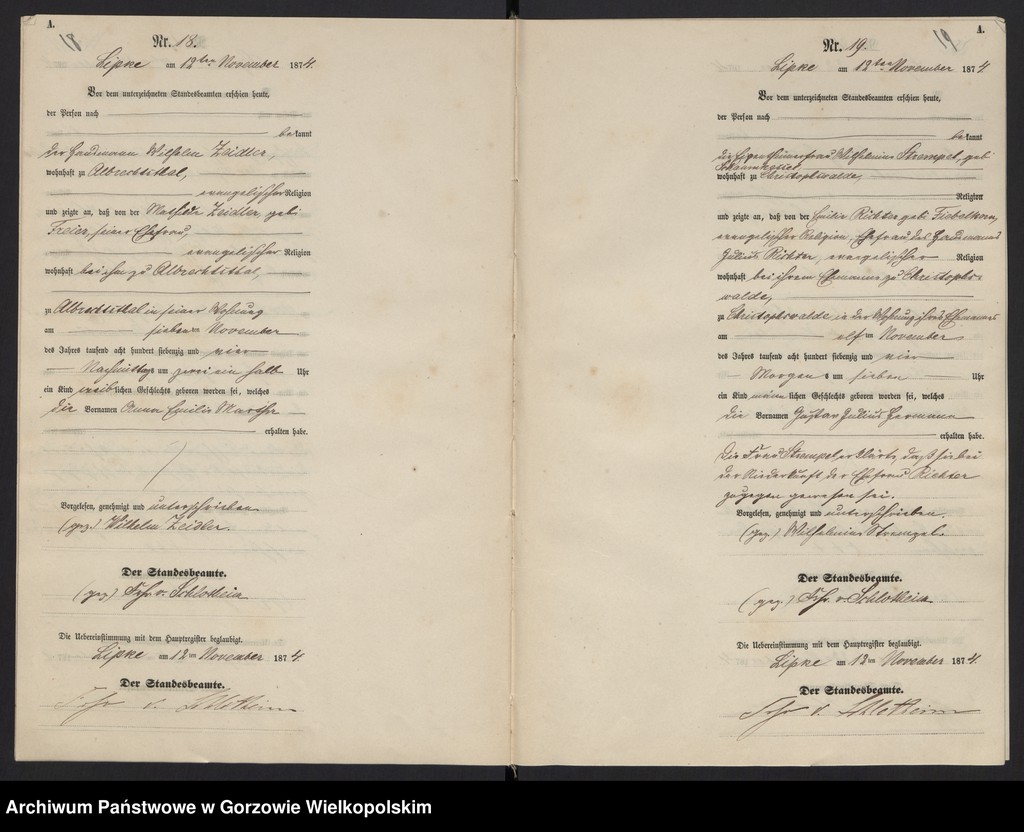 A.
18
Nr. 18.
Lipke am 12ten November 1874.
Vor dem unterzeichneten Standesbeamten erschien heute,
der Person nach
bekannt
der Landmann Wilhelm Zeidler,
wohnhaft zu Albrechtsthal,
evangelischer Religion
und zeigte an, daß von der Mathilde Zeidler, geb.
Freier, seiner Ehefrau,
evangelischer Religion
wohnhaft bei ihm zu Albrechtsthal,
zu Albrechtsthal in seiner Wohnung
am sieben November
des Jahres tausend acht hundert siebenzig und vier
Nachmittags um zwei ein halb Uhr
ein Kind weiblichen Geschlechts geboren worden sei, welches
die Vornamen Anna Emilie Martha
erhalten habe.
Vorgelesen, genehmigt und unterschrieben
(gez.) Wilhelm Zeidler.
Der Standesbeamte.
(gez) Frhr. v. Schlotheim
Die Uebereinstimmung mit dem Hauptregister beglaubigt.
Lipke am 12ten November 1874.
Der Standesbeamte.
Frhr v. Schlotheim
A.
19
Nr. 19.
Lipke am 12ten November 1874.
Vor dem unterzeichneten Standesbeamten erschien heute,
der Person nach
bekannt
die Eigenthümerfrau Wilhelmine Strempel, geb.
wohnhaft zu Christophswalde,
Religion
und zeigte an, daß von der Emilie Richter geb. Fiebelkorn,
evangelischer Religion, Ehefrau des Landmanns
Julius Richter, evangelischer Religion
wohnhaft bei ihrem Ehemanne zu Christophs-
walde,
zu Christophswalde in der Wohnung ihres Ehemannes
am elften November
des Jahres tausend acht hundert siebenzig und vier
Morgens um sieben Uhr
ein Kind männlichen Geschlechts geboren worden sei, welches
die Vornamen Gustav Julius Hermann
erhalten habe.
Die Frau Strempel erklärte, daß sie bei
der Niederkunft der Ehefrau Richter
zugegen gewesen sei.
Vorgelesen, genehmigt und unterschrieben.
(gez.) Wilhelmine Strempel.
Der Standesbeamte.
(gez.) Frhr. v. Schlotheim
Die Uebereinstimmung mit dem Hauptregister beglaubigt.
Lipke am 12ten November 1874.
Der Standesbeamte.
Frhr v. Schlotheim
Archiwum Państwowe w Gorzowie Wielkopolskim